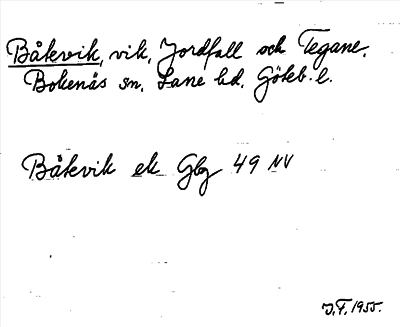 Båkevik, vik, Jordfall och Tegane.
Bokenäs sn. Lane hd. Göteb. l.
Båkvik ek Gbg 49 NV
J.F. 1955.